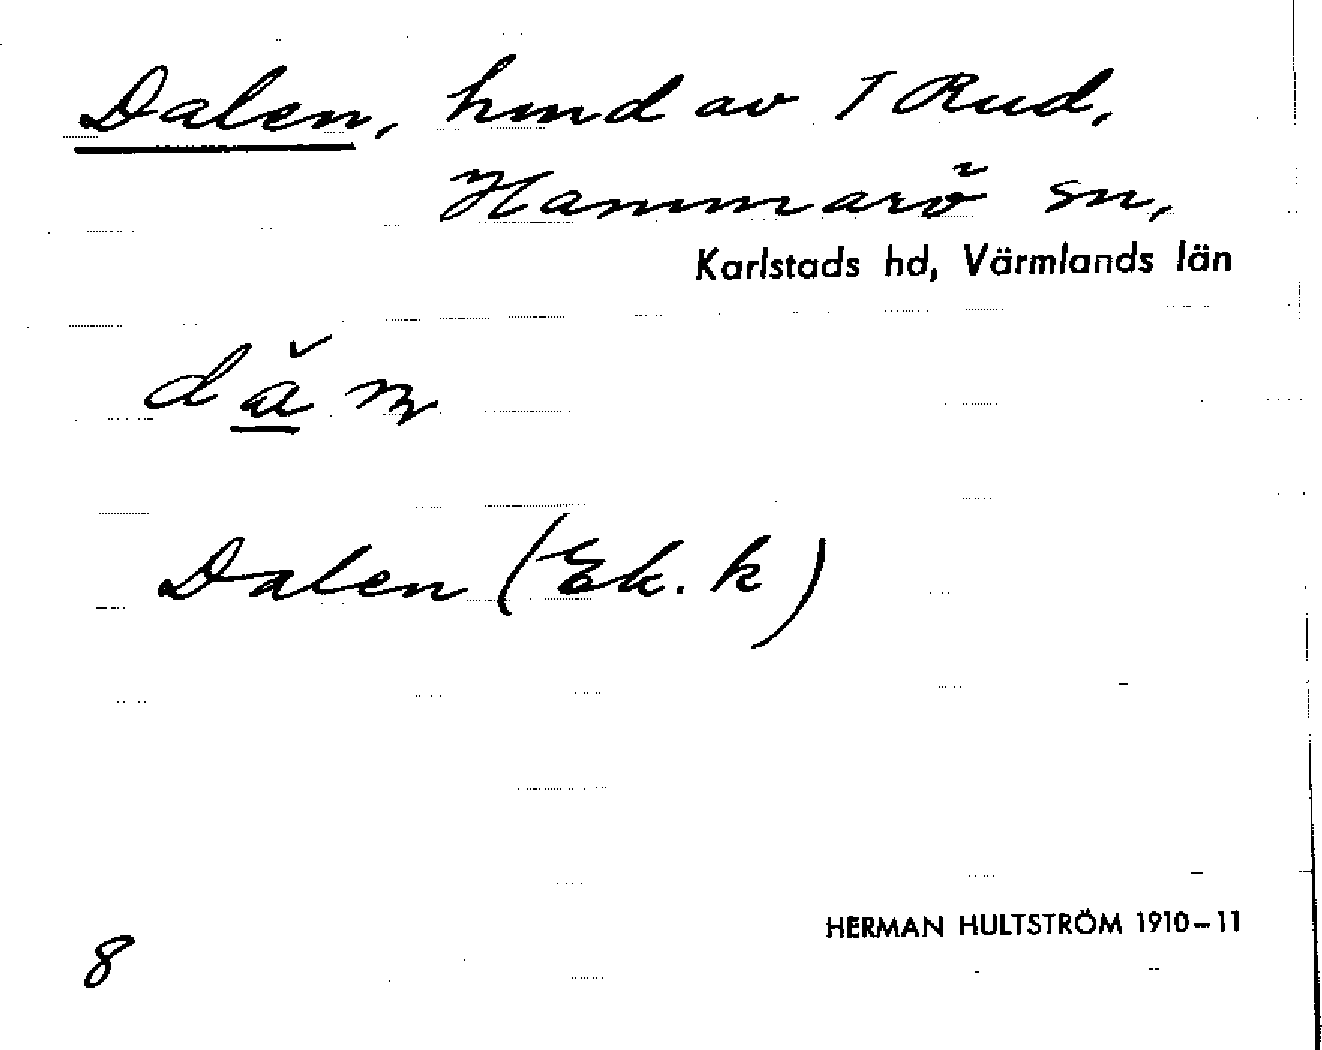 Dalen, hmd av 1 Rud,
Hammarö sn,
Karlstads hd, Värmlands län
Dalen (Ek. k)
8
HERMAN HULTSTRÖM 1910–11